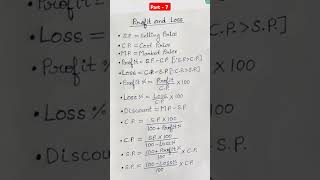 Part - 7
Profit and Loss
• S.P. = Selling Price
• C.P. = Cost Price
• M.P. = Marked Price
• Profit = S.P - C.P. [∵S.P.>C.P.]
• Loss = C.P. - S.P. [∵C.P.>S.P.]
• Profit % = Profit/C.P. × 100
• Loss % = Loss/C.P. × 100
• Discount = M.P - S.P.
• C.P. = S.P × 100 / 100 + Profit %
• C.P. = S.P × 100 / 100 - Loss %
• S.P. = 100 + Profit % / 100 × C.P.
• S.P. = 100 - Loss % / 100 × C.P.